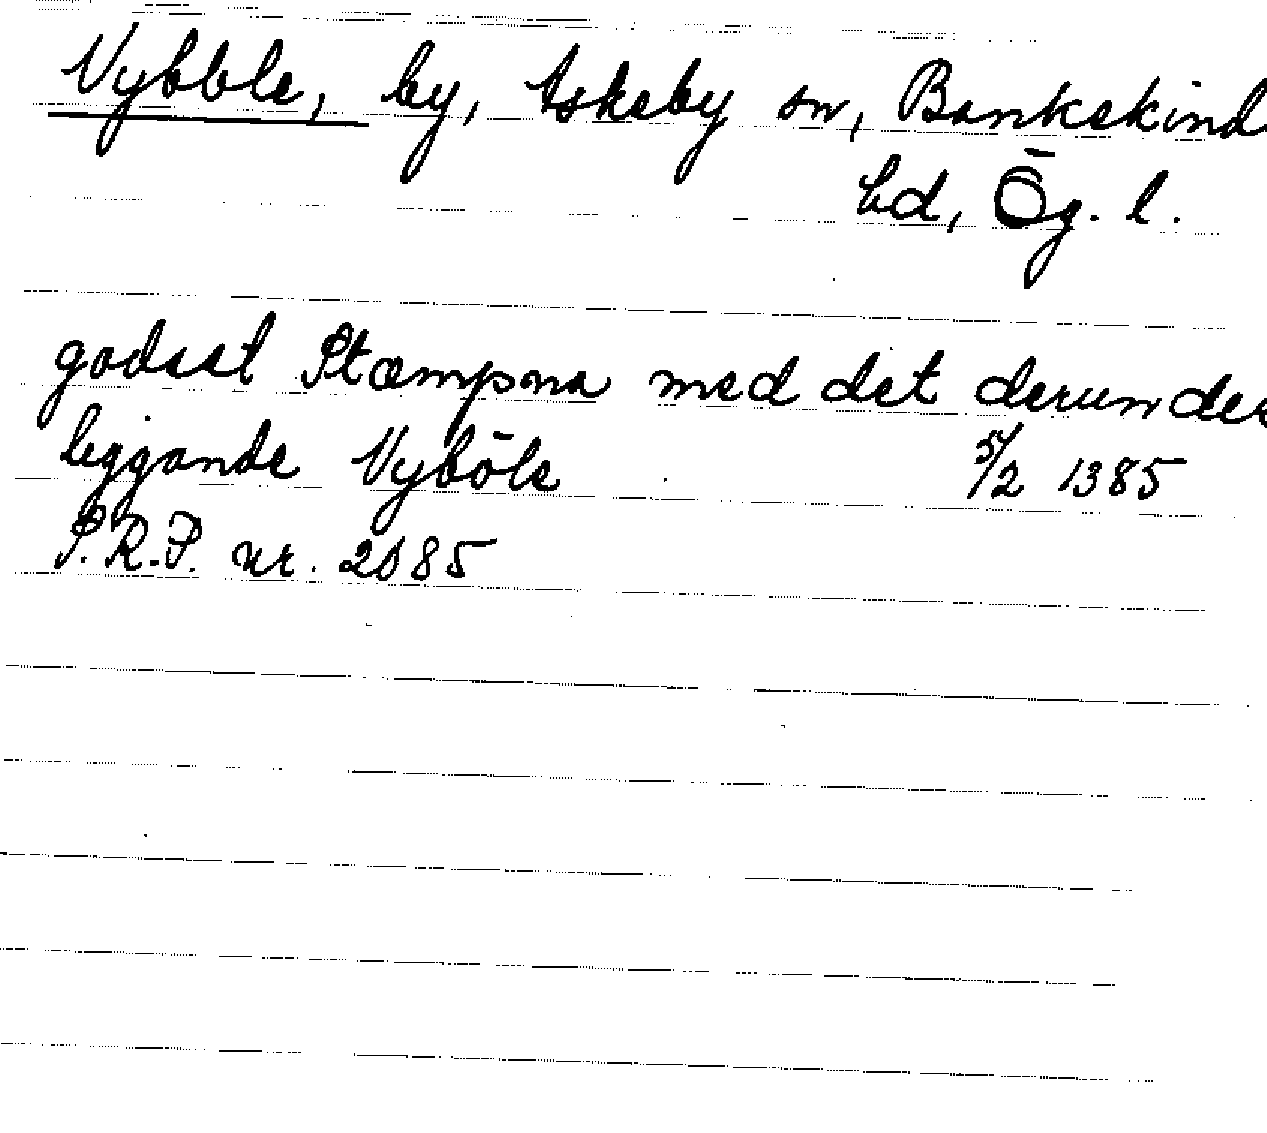 Vybble, by, Askeby sn, Bankekind
hd, Ög. l.
godset Stæmpna med det derunder
liggande Vyböle 5/2 1385
S.R.P. nr. 2085